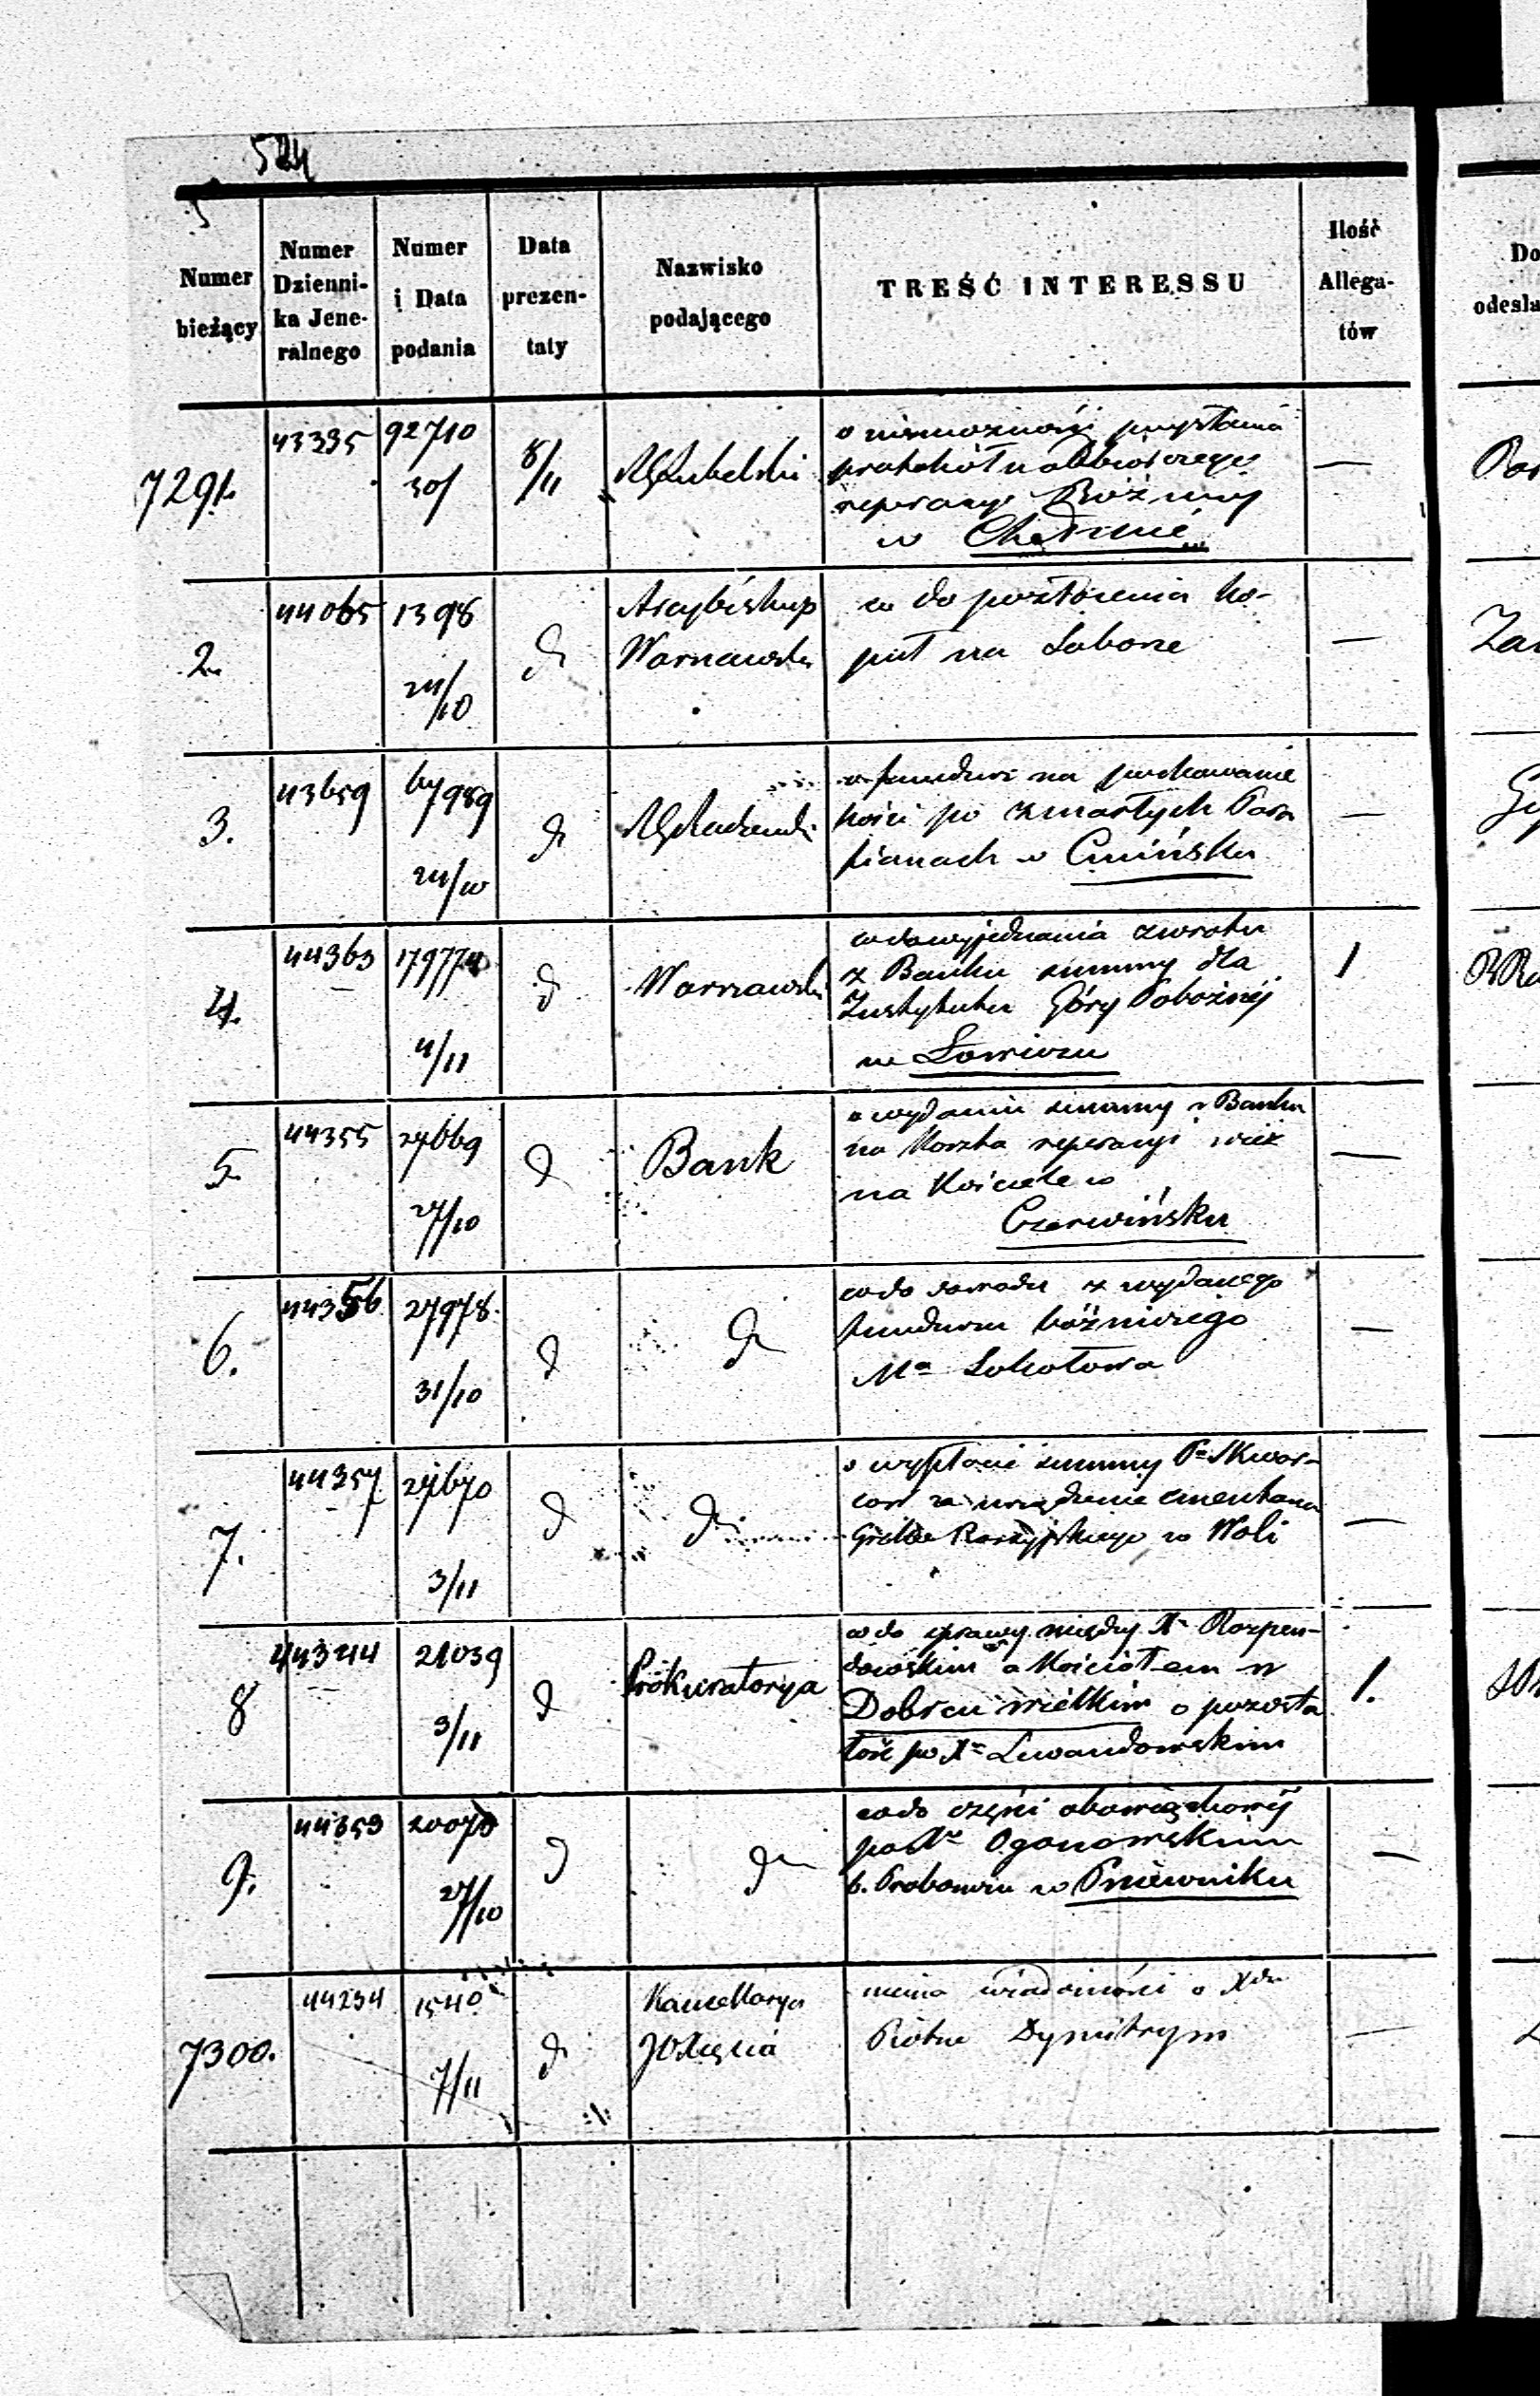 524
Numer bieżący
Numer Dzienni-ka Jene-ralnego
Numer i Data podania
Data prezen-taty
Nazwisko podającego
TREŚĆ INTERESSU
Ilość Allega-tów
Do
odesła
7291.
43395
92710
30/
8/11
RG Lubelski
o niemożności przysłania
protokółu odbiorczego
reperacyi Bóżnicy
w Chełmie
—
2.
44065
1398
24/10
d
Arcybiskup
Warszawski
co do pozłocenia ko-
puł na Soborze
—
Za
3.
43659
67989
24/10
d
RG Radomski
o funduszu na pochowanie
kości po zmarłych Para
fianach w Cmińsku
—
4.
44363
4/11
d
Warszawski
co do wyjednania zwrotu
z Banku summy dla
Instytutu Góry Pobożnéj
w Łowiczu
1
5
44355
27669
27/10
d
Bank
o wydaniu summy z Banku
na koszta reperacyi wież
na Kościele w
Czerwińsku
—
6.
44356
27978
31/10
d
d
co do dowodu z wydanego
funduszu bóżniczego
Ma Sokołowa
—
7.
44357
27670
3/11
d
d
o wypłacie summy Pa Skwar-
cow za urządzenie cmentarza
Greko Rossyjskiego w Woli
—
8
44344
21039
3/11
d
Prokuratorya
co do sprawy między Xm
dowskim a Kościołem w
Dobrcu wielkim o pozosta
łość po Xm Lewandowskim
1.
9.
44359
27/10
d
d
co do części obowiązkowéj
po Xu Oganowskim
b. Proboszczu w Pniewniku
—
7300.
44234
1540
7/11
d
Kancellarya
JO Xięcia
niema wiadomości o Xdzu
Piotrze Dymitrym
—